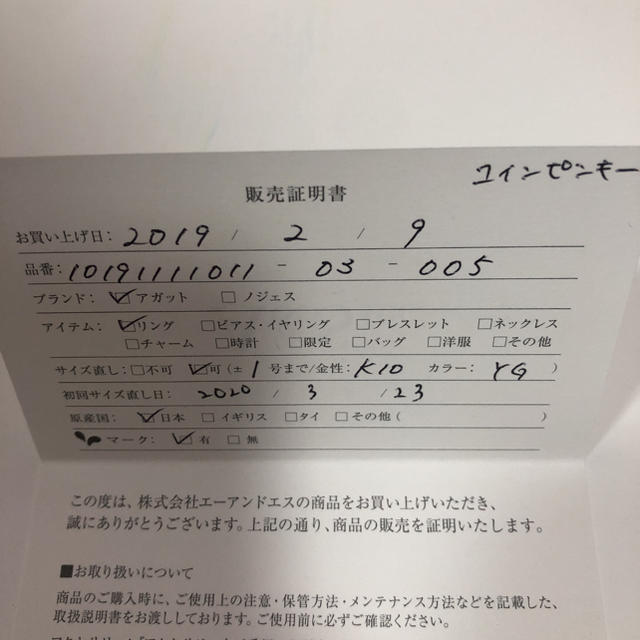 コインピンキー
販売証明書
お買い上げ日: 2019 / 2 / 9
品番: 10191111011 - 03 - 005
ブランド: ☑アガット □ノジェス
アイテム: ☑リング □ピアス・イヤリング □ブレスレット □ネックレス
□チャーム □時計 □限定 □バッグ □洋服 □その他
サイズ直し: □不可 ☑可(± 1 号まで/金性: K10 カラー: YG )
初回サイズ直し日: 2020 / 3 / 23
原産国: ☑日本 □イギリス □タイ □その他( )
マーク: ☑有 □無
この度は、株式会社エーアンドエスの商品をお買い上げいただき、
誠にありがとうございます。上記の通り、商品の販売を証明いたします。
■お取り扱いについて
商品のご購入時に、ご使用上の注意・保管方法・メンテナンス方法などを記載した、
取扱説明書をお渡ししております。ご使用前に必ずご確認ください。